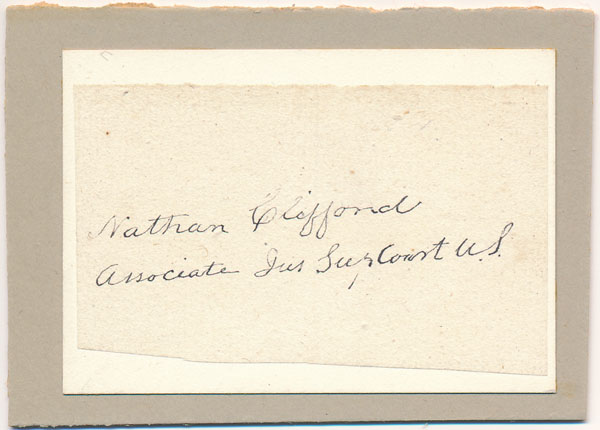 Nathan Clifford
Associate Jus Sup Court U.S.